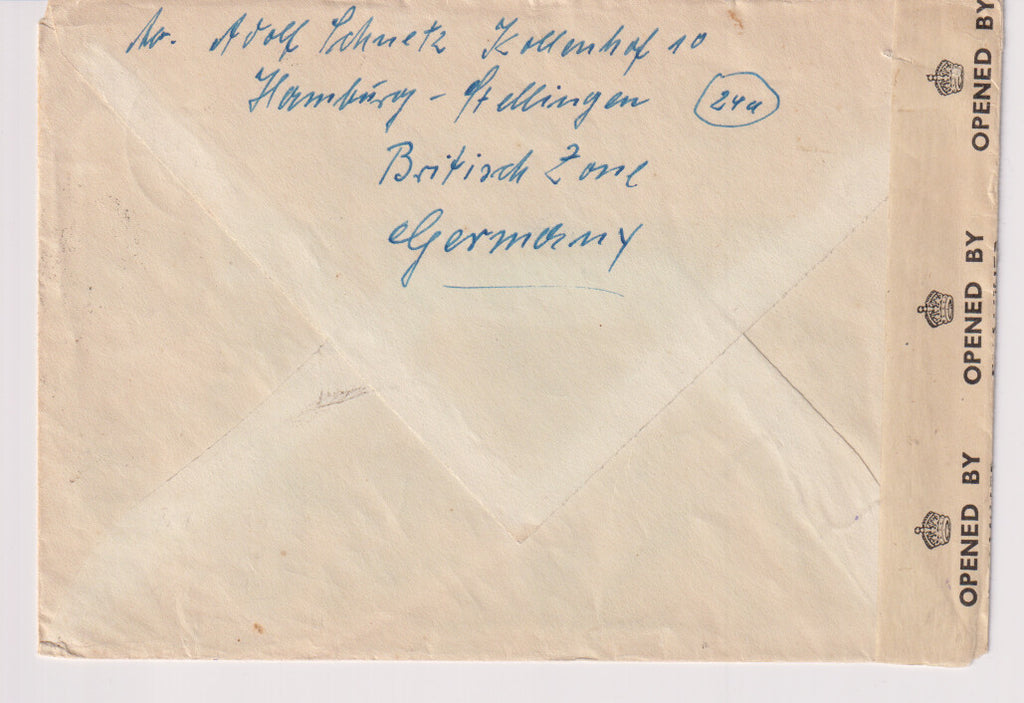 Adolf Schnetz Kollenhof 10
Hamburg - Stellingen (24a)
Britisch Zone
Germany
OPENED BY
OPENED BY
OPENED BY